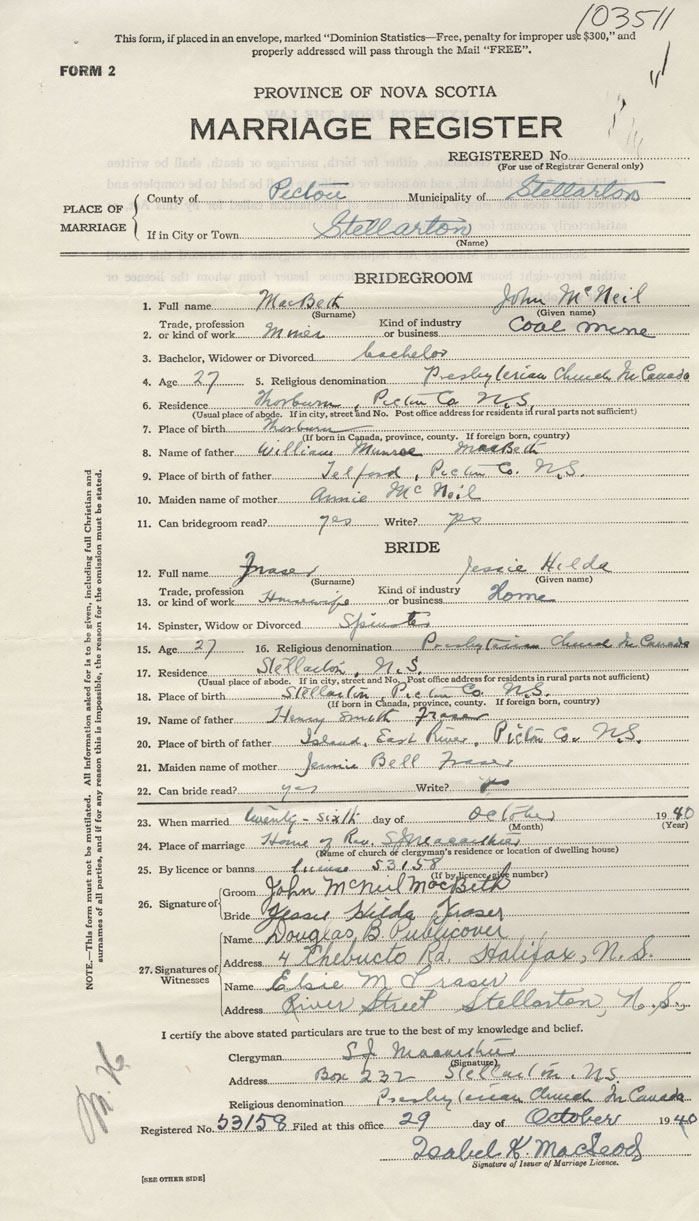 103511
This form, if placed in an envelope, marked "Dominion Statistics—Free, penalty for improper use $300," and
properly addressed will pass through the Mail "FREE".
FORM 2
PROVINCE OF NOVA SCOTIA
MARRIAGE REGISTER
REGISTERED No.
(For use of Registrar General only)
PLACE OF MARRIAGE
County of Pictou Municipality of Stellarton
If in City or Town Stellarton
(Name)
BRIDEGROOM
1. Full name MacBeth John McNeil
(Surname) (Given name)
2. Trade, profession or kind of work Miner Kind of industry or business Coal mine
3. Bachelor, Widower or Divorced bachelor
4. Age 27 5. Religious denomination Presbyterian Church In Canada
6. Residence Thorburn, Pictou Co. N.S.
(Usual place of abode. If in city, street and No. Post office address for residents in rural parts not sufficient)
7. Place of birth Thorburn
(If born in Canada, province, county. If foreign born, country)
8. Name of father William Munroe MacBeth
9. Place of birth of father Telford, Pictou Co. N.S.
10. Maiden name of mother Annie McNeil
11. Can bridegroom read? yes Write? yes
BRIDE
12. Full name Fraser Jessie Hilda
(Surname) (Given name)
13. Trade, profession or kind of work Housewife Kind of industry or business Home
14. Spinster, Widow or Divorced Spinster
15. Age 27 16. Religious denomination Presbyterian Church In Canada
17. Residence Stellarton, N.S.
(Usual place of abode. If in city, street and No. Post office address for residents in rural parts not sufficient)
18. Place of birth Stellarton, Pictou Co. N.S.
(If born in Canada, province, county. If foreign born, country)
19. Name of father Henry Smith Fraser
20. Place of birth of father Island, East River, Pictou Co. N.S.
21. Maiden name of mother Jennie Bell Fraser
22. Can bride read? yes Write? yes
23. When married twenty-sixth day of October 1940
(Month) (Year)
24. Place of marriage Home of Rev. S.J. Macarthur
(Name of church or clergyman's residence or location of dwelling house)
25. By licence or banns license 53158
(If by licence, give number)
26. Signature of
Groom John McNeil MacBeth
Bride Jessie Hilda Fraser
27. Signatures of Witnesses
Name Douglas B. Publicover
Address 4 Chebucto Rd. Halifax, N.S.
Name Elsie M Fraser
Address River Street Stellarton, N.S.
I certify the above stated particulars are true to the best of my knowledge and belief.
Clergyman S.J. Macarthur
(Signature)
Address Box 232 Stellarton. N.S.
Religious denomination Presbyterian Church In Canada
Registered No. 53158 Filed at this office 29 day of October 1940
Isabel K. MacLeod
Signature of Issuer of Marriage Licence.
[SEE OTHER SIDE]
NOTE.—This form must not be mutilated. All information asked for is to be given, including full Christian and
surnames of all parties, and if for any reason this is impossible, the reason for the omission must be stated.